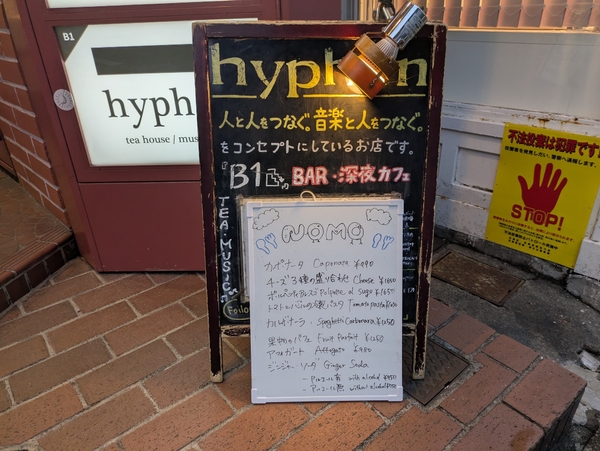 B1
hyph
tea house / mus
hyphen
人と人をつなぐ。音楽と人をつなぐ。
をコンセプトにしているお店です。
B1 BAR・深夜カフェ
TEA. MUSIC
Follow
NOMO
カポナータ Caponata ¥990
チーズ3種の盛り合わせ Cheese
ポルペッティ Polpette al sugo ¥1650
トマトとバジルの パスタ Tomato pasta
カルボナーラ・Spaghetti Carbonara ¥1,650
果物のパフェ Fruit Parfait ¥1,650
アフォガート Affogato ¥980
ジンジャーソーダ Ginger Soda
- アルコール有 with alcohol
- アルコール無 without alcohol
不法投棄は犯罪です
STOP!